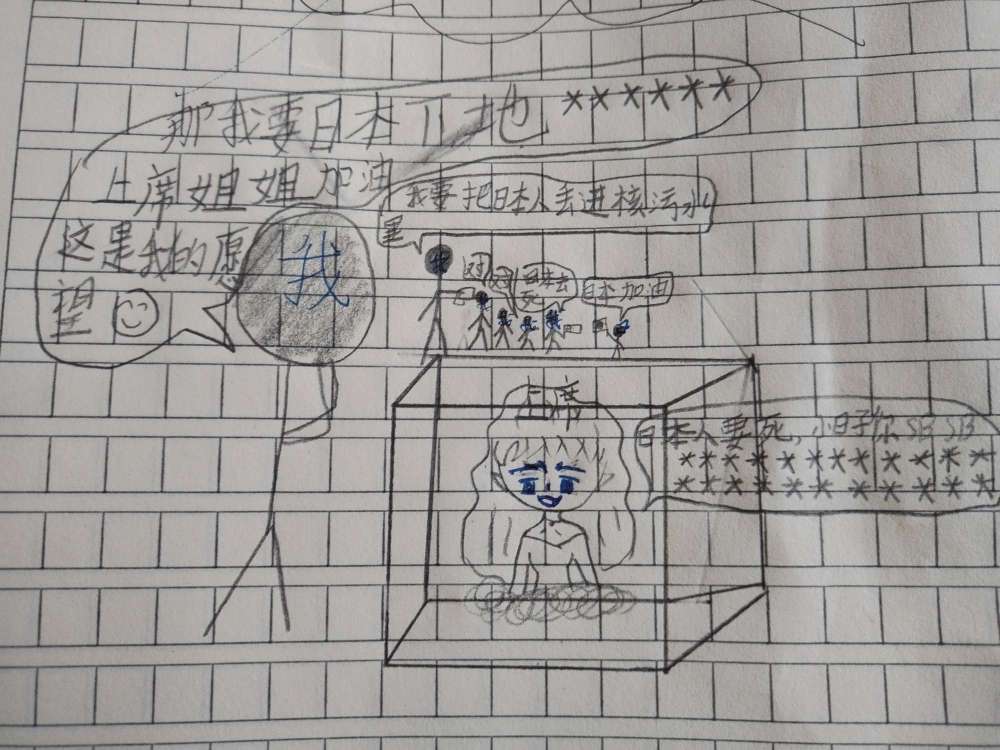 那我要日本 地******
上席姐姐加油
这是我的愿
望
我
我要把日本人丢进核污水
里
日本去
死
日本加油
上席
日本人要死,小日子你SBSB
***********
***********